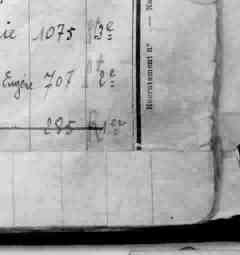 ie 1075 3e
Eugène 707 2e
285 1er
Recrutement n° — Na